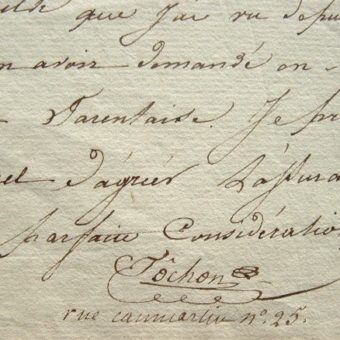 que j'ai vu depu
n avoir demandé en
Tarentaise. Je pr
el d'agréer L'assura
parfaite Considération
Tôchon
rue caumartin n.° 25.